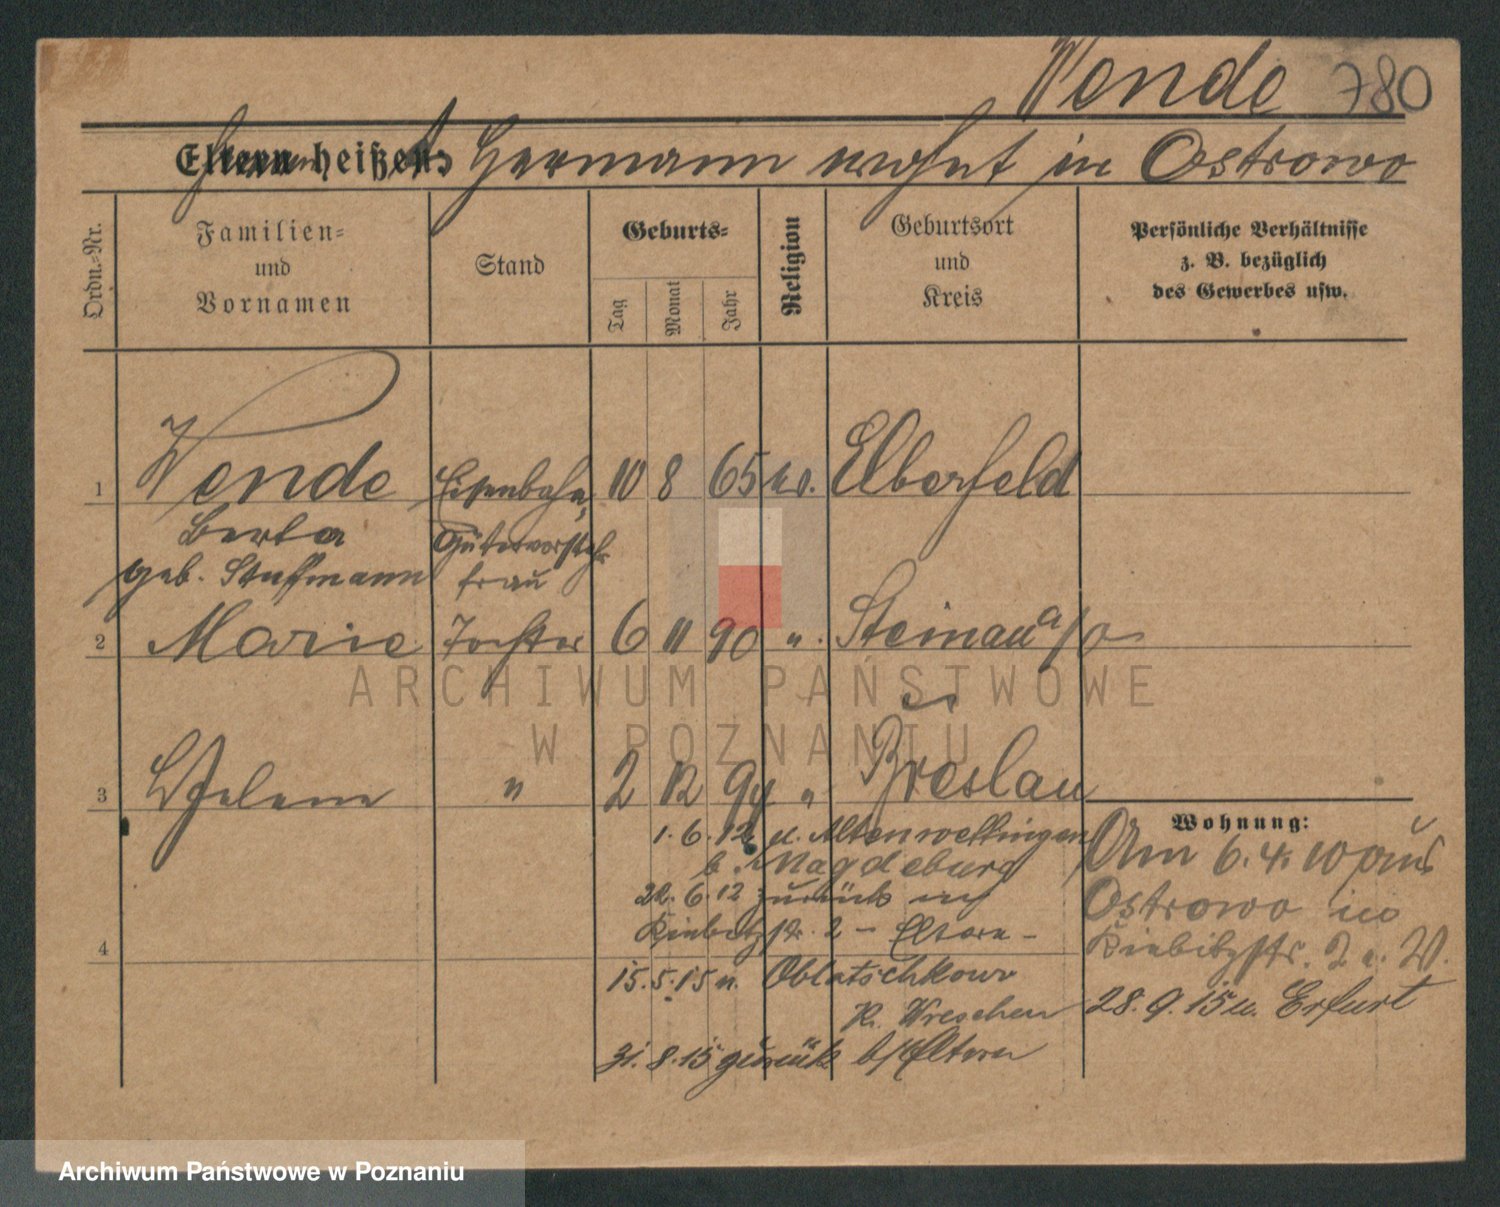 Wende 780
Eltern heißen:
Hermann wohnt in Ostrowo
Ordn.-Nr.
Familien-
und
Vornamen
Stand
Geburts-
Tag
Monat
Jahr
Religion
Geburtsort
und
Kreis
Persönliche Verhältnisse
z. B. bezüglich
des Gewerbes usw.
1 Wende Eisenbahn 10 8 65 ev. Elberfeld
Berta Gütervorsteh.
geb. frau
2 Marie Tochter 6 11 90 " Steinau a/o
3 Helene " 2 12 94 " Breslau
1.6.12 n.
b. Magdeburg
22.6.12 zurück
Kiebitzstr. 2 - Eltern -
4
15.5.15 n. Oblatschkowo
Kr. Wreschen
31.8.15 zurück b/ Eltern
Wohnung:
Am 6.4.10 aus
Ostrowo in
Kiebitzstr. 2 a. W.
28.9.15 n. Erfurt
ARCHIWUM PAŃSTWOWE
W POZNANIU
Archiwum Państwowe w Poznaniu